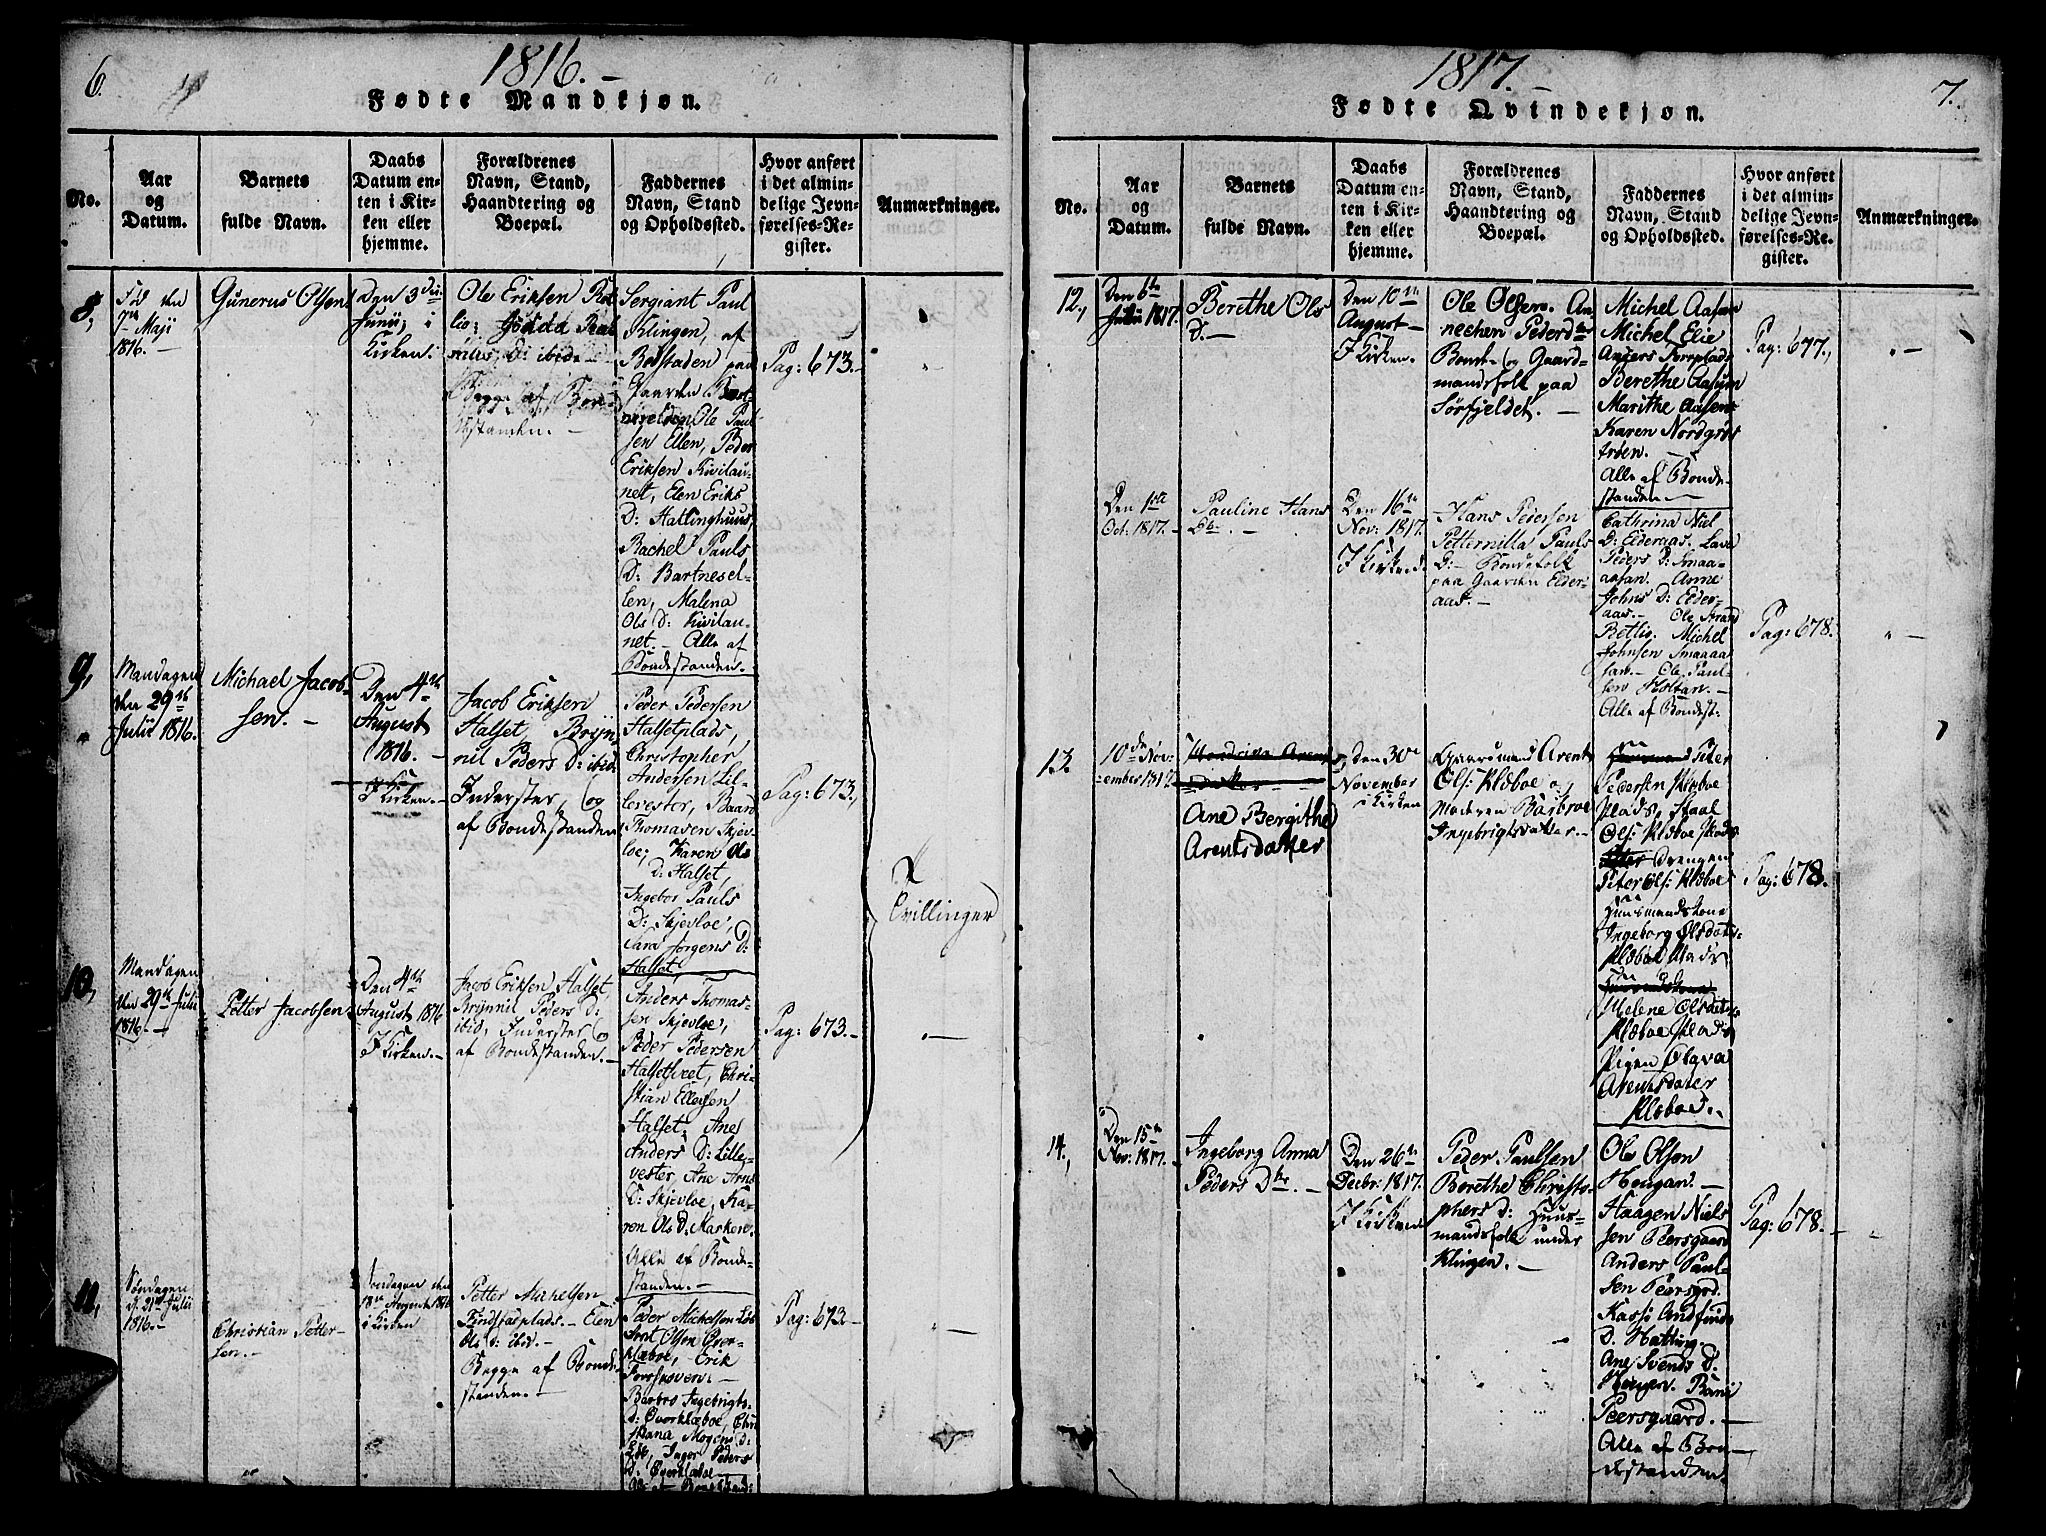 6.
1816. –
Fødte Mandkjøn.
No.
Aar
og
Datum.
Barnets
fulde Navn.
Daabs
Datum en-
ten i Kir-
ken eller
hjemme.
Forældrenes
Navn, Stand,
Haandtering og
Boepæl.
Faddernes
Navn, Stand
og Opholdssted.
Hvor anført
i det almin-
delige Jevn-
førelses-Re-
gister.
Anmærkninger.
8,
Fød den
Maji
1816. –
Gunerus Olsen
Den 3
Junii, i
Kirken.
Ole Eriksen
D: ibid –
Begge af Bon-
destanden. –
Sergiant Paul
Klingen, af
Bodstaden paa
Gaarden
Ole Paul-
sen Ellen, Peder
Eriksen Kivilau-
net, Elen Eriks
D: Hallinghuus,
Rachel Pauls
D: Bartnesel-
len, Malena
Ols D: Kivilau-
net. – Alle af
Bondestanden.
Pag: 673. –
9,
Mandagen
den 29de
Julii 1816.
Michael Jacob-
sen. –
Den 4de
August
1816. –
I Kirken. –
Jacob Eriksen
Halset, Bryn-
nil Peders D: ibid.
Inderster, og
af Bondestanden
Peder Pedersen
Halsetplads,
Christopher
Andersen Lil-
levestor, Baard
Thomasen Skjev-
loe, Karen Ols
D: Halset,
Ingebor Pauls
D: Skjevloe,
Sara Jørgens D:
Halset,
Pag: 673.,
Tvillinger
10,
Mandagen
den 29de Julii
1816. –
Petter Jacobsen
Den 4de
August 1816
I Kirken. –
Jacob Eriksen Halset,
Brynnil Peders D:
ibid, Inderster og
af Bondestanden. –
Anders Thomas-
sen Skjevloe,
Peder Pedersen
Halsetsveet, Chri-
stian Ellevsen
Halset, Anes
Anders D: Lille-
vester, Ane Arns
D: Skjevloe, Ka-
ren Ols D. Marken.
Alle af Bonde-
standen. –
Pag: 673. –
11,
Søndagen
d. 21de Julii
1816. –
Christian Petter-
sen. –
Søndagen den
18de August 1816
i Kirken
Petter Michelsen
Findstadplads. – Elen
Ols D: ibid. –
Begge af Bonde-
standen. –
Peder Michelsen
Olsen Over-
klæboe, Erik
Barbro Ingebrigts-
D: Overklæboe, Chri-
stiana Mogens D:
Inger Peders
D: Overklæboe
Pag: 673 –
1817. –
7.
Fødte Qvindekjøn.
No.
Aar
og
Datum.
Barnets
fulde Navn.
Daabs
Datum en-
ten i Kir-
ken eller
hjemme.
Forældrenes
Navn, Stand,
Haandtering og
Boepæl.
Faddernes
Navn, Stand
og Opholdssted.
Hvor anført
i det almin-
delige Jevn-
førelses-Re-
gister.
Anmærkninger.
12,
Den 6te
Julii 1817.
Berethe Ols
D. –
Den 10de
August –
I Kirken. –
Ole Olsen. An-
nechen Pedersd
Bonde- og Gaard-
mandsfolk paa
Sørfjeldet. –
Michel Aasan
Michel Elie
Anders
Berethe Aasum
Marithe Aasen
Karen Nordgrøs-
troen.
Alle af Bonde-
standen –
Pag: 677.,
Den 1ste
Oct: 1817. –
Pauline Hans
D. –
Den 16de
Nov: 1817.
I Kirken.
Hans Pedersen
Petternilla Pauls
D: – Bondefolk
paa Gaarden Elder-
aas. –
Cathrina Niel
D: Elderaas. Lava
Peders D: Smaa-
aasan. Anne
Johns D: Elder-
aas. – Ole Strand
Betlis. Michel
Johnsen Smaaaa
san. – Ole Paul-
sen Holtan. –
Alle af Bondest:
Pag: 678.
13.
10de Nov-
ember 1817.
Ane Bergithe
Arentsdatter
Den 30te
November
i Kirken
Gaardmand Arent
Ols: Kleboe og
Madren Barbroe
Ingebrigtsdatter. –
Peter
Pedersen Kleboe
plads, Staal
Ols: Kleboe plads
Drengen
Peter Ols: Kleboe
Huusmandskone
Ingeborg Olsdater
Kleboe Plads
Helene Olsdater
Kleboe plads
Pigen Olava
Arentsdater
Kleboe.
Pag: 678.
14.,
Den 15de
Nov: 1817.
Ingeborg Anna
Peders D. –
Den 26de
Decbr: 1817.
I Kirken
Peder Paulsen
Berethe Christo-
phers D: Huus-
mandsfolk under
Klingen. –
Ole Olsen
Hougan. –
Haagen Niel-
sen Peersgaard
Anders Paul-
sen Peersgrd.
Kassi Andfinds
D. Hatling.
Ane Svends D.
Peersgaard. –
Alle af Bon-
destanden.
Pag: 678. –